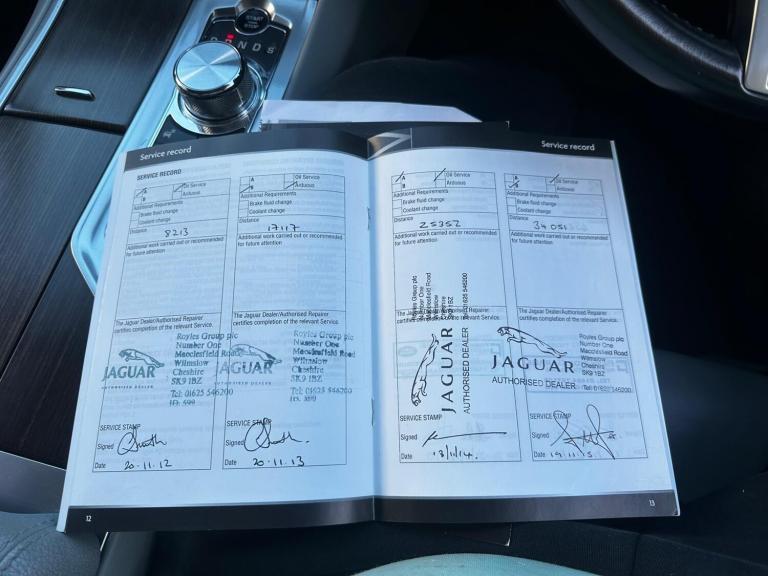 START
STOP
R N D S
Service record
SERVICE RECORD
A
B
Oil Service
Arduous
Additional Requirements
Brake fluid change
Coolant change
Distance
8213
Additional work carried out or recommended
for future attention
The Jaguar Dealer/Authorised Repairer
certifies completion of the relevant Service.
JAGUAR
AUTHORISED DEALER
Royles Group plc
Number One
Macclesfield Road
Wilmslow
Cheshire
SK9 1BZ
Tel: 01625 546200
ID: 599
SERVICE STAMP
Signed
Date 20.11.12
A
B
Oil Service
Arduous
Additional Requirements
Brake fluid change
Coolant change
Distance
17117
Additional work carried out or recommended
for future attention
The Jaguar Dealer/Authorised Repairer
certifies completion of the relevant Service.
JAGUAR
AUTHORISED DEALER
Royles Group plc
Number One
Macclesfield Road
Wilmslow
Cheshire
SK9 1BZ
Tel: 01625 546200
ID: 599
SERVICE STAMP
Signed
Date 20.11.13
12
Service record
A
B
Oil Service
Arduous
Additional Requirements
Brake fluid change
Coolant change
Distance
25352
Additional work carried out or recommended
for future attention
The Jaguar Dealer/Authorised Repairer
certifies completion of the relevant Service.
JAGUAR
AUTHORISED DEALER
Royles Group plc
Number One
Macclesfield Road
Wilmslow
Cheshire
SK9 1BZ
Tel: 01625 546200
SERVICE STAMP
Signed
Date 13/11/14.
A
B
Oil Service
Arduous
Additional Requirements
Brake fluid change
Coolant change
Distance
34051
Additional work carried out or recommended
for future attention
The Jaguar Dealer/Authorised Repairer
certifies completion of the relevant Service.
JAGUAR
AUTHORISED DEALER
Royles Group plc
Number One
Macclesfield Road
Wilmslow
Cheshire
SK9 1BZ
Tel: 01625 546200
SERVICE STAMP
Signed
Date 19.11.15
13